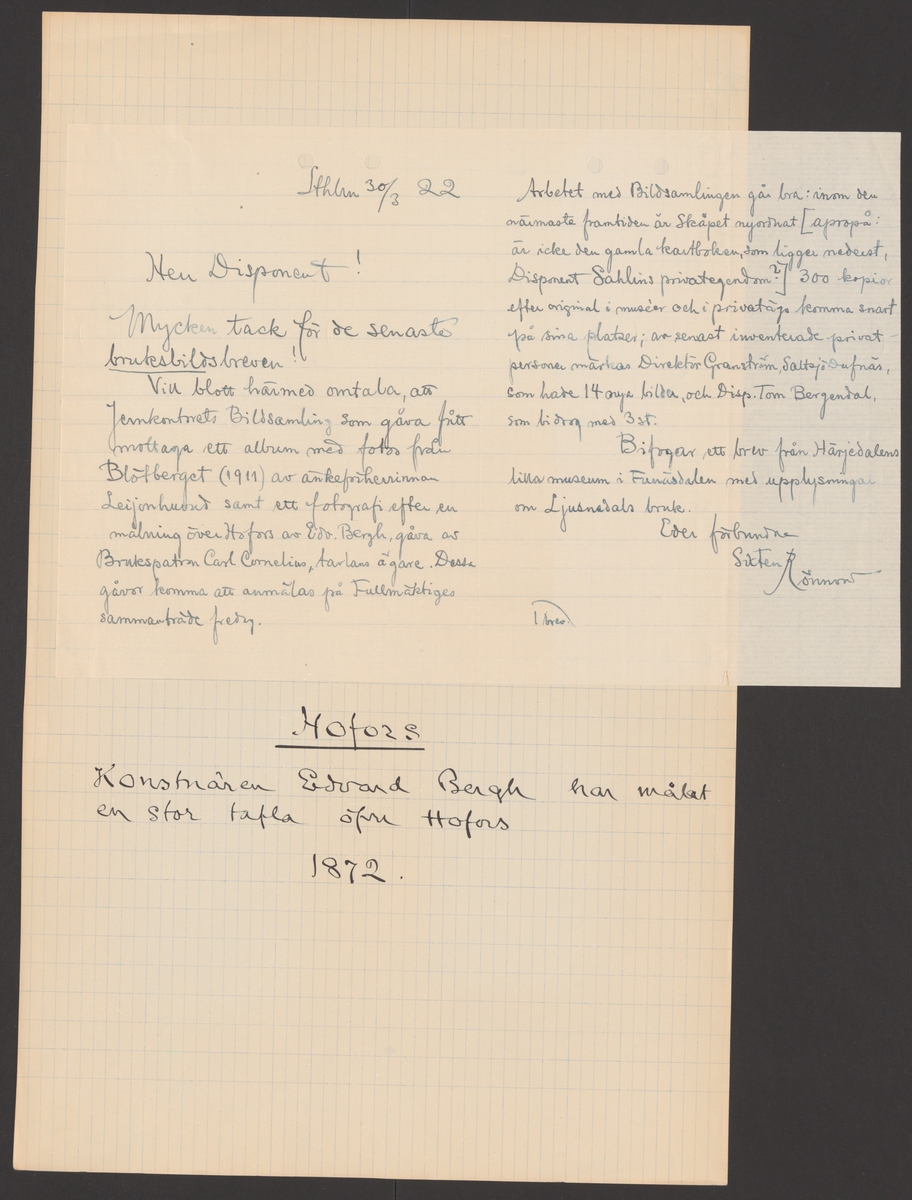 Sthlm 30/3 22
Herr Disponent!
Mycken tack för de senaste
bruksbildsbreven!
Vill blott härmed omtala, att
Jernkontorets Bildsamling som gåva fått
mottaga ett album med foton från
Blötberget (1911) av änkefriherrinnan
Leijonhuvud samt ett fotografi efter en
målning över Hofors av Edv. Bergh, gåva av
Brukspatron Carl Cornelius, tavlans ägare. Dessa
gåvor komma att anmälas på Fullmäktiges
sammanträde fredag.
Arbetet med Bildsamlingen går bra: inom den
närmaste framtiden är Skåpet nyordnat [apropå:
är icke den gamla kartboken, som ligger nederst,
Disponent Sahlins privategendom?] 300 kopior
efter original i muséer och i privatägo komma snart
på sina platser; av senast inventerade privat-
personer märkas Direktör Granström, Saltsjö Dufnäs,
som hade 14 nya bilder, och Disp. Tom Bergendal,
som bidrog med 3 st.
Bifogar ett brev från Härjedalens
lilla museum i Funäsdalen med upplysningar
om Ljusnedals bruk.
Eder förbundne
Sixten Rönnow
1 brev
Hofors
Konstnären Edvard Bergh har målat
en stor tafla öfver Hofors
1872.